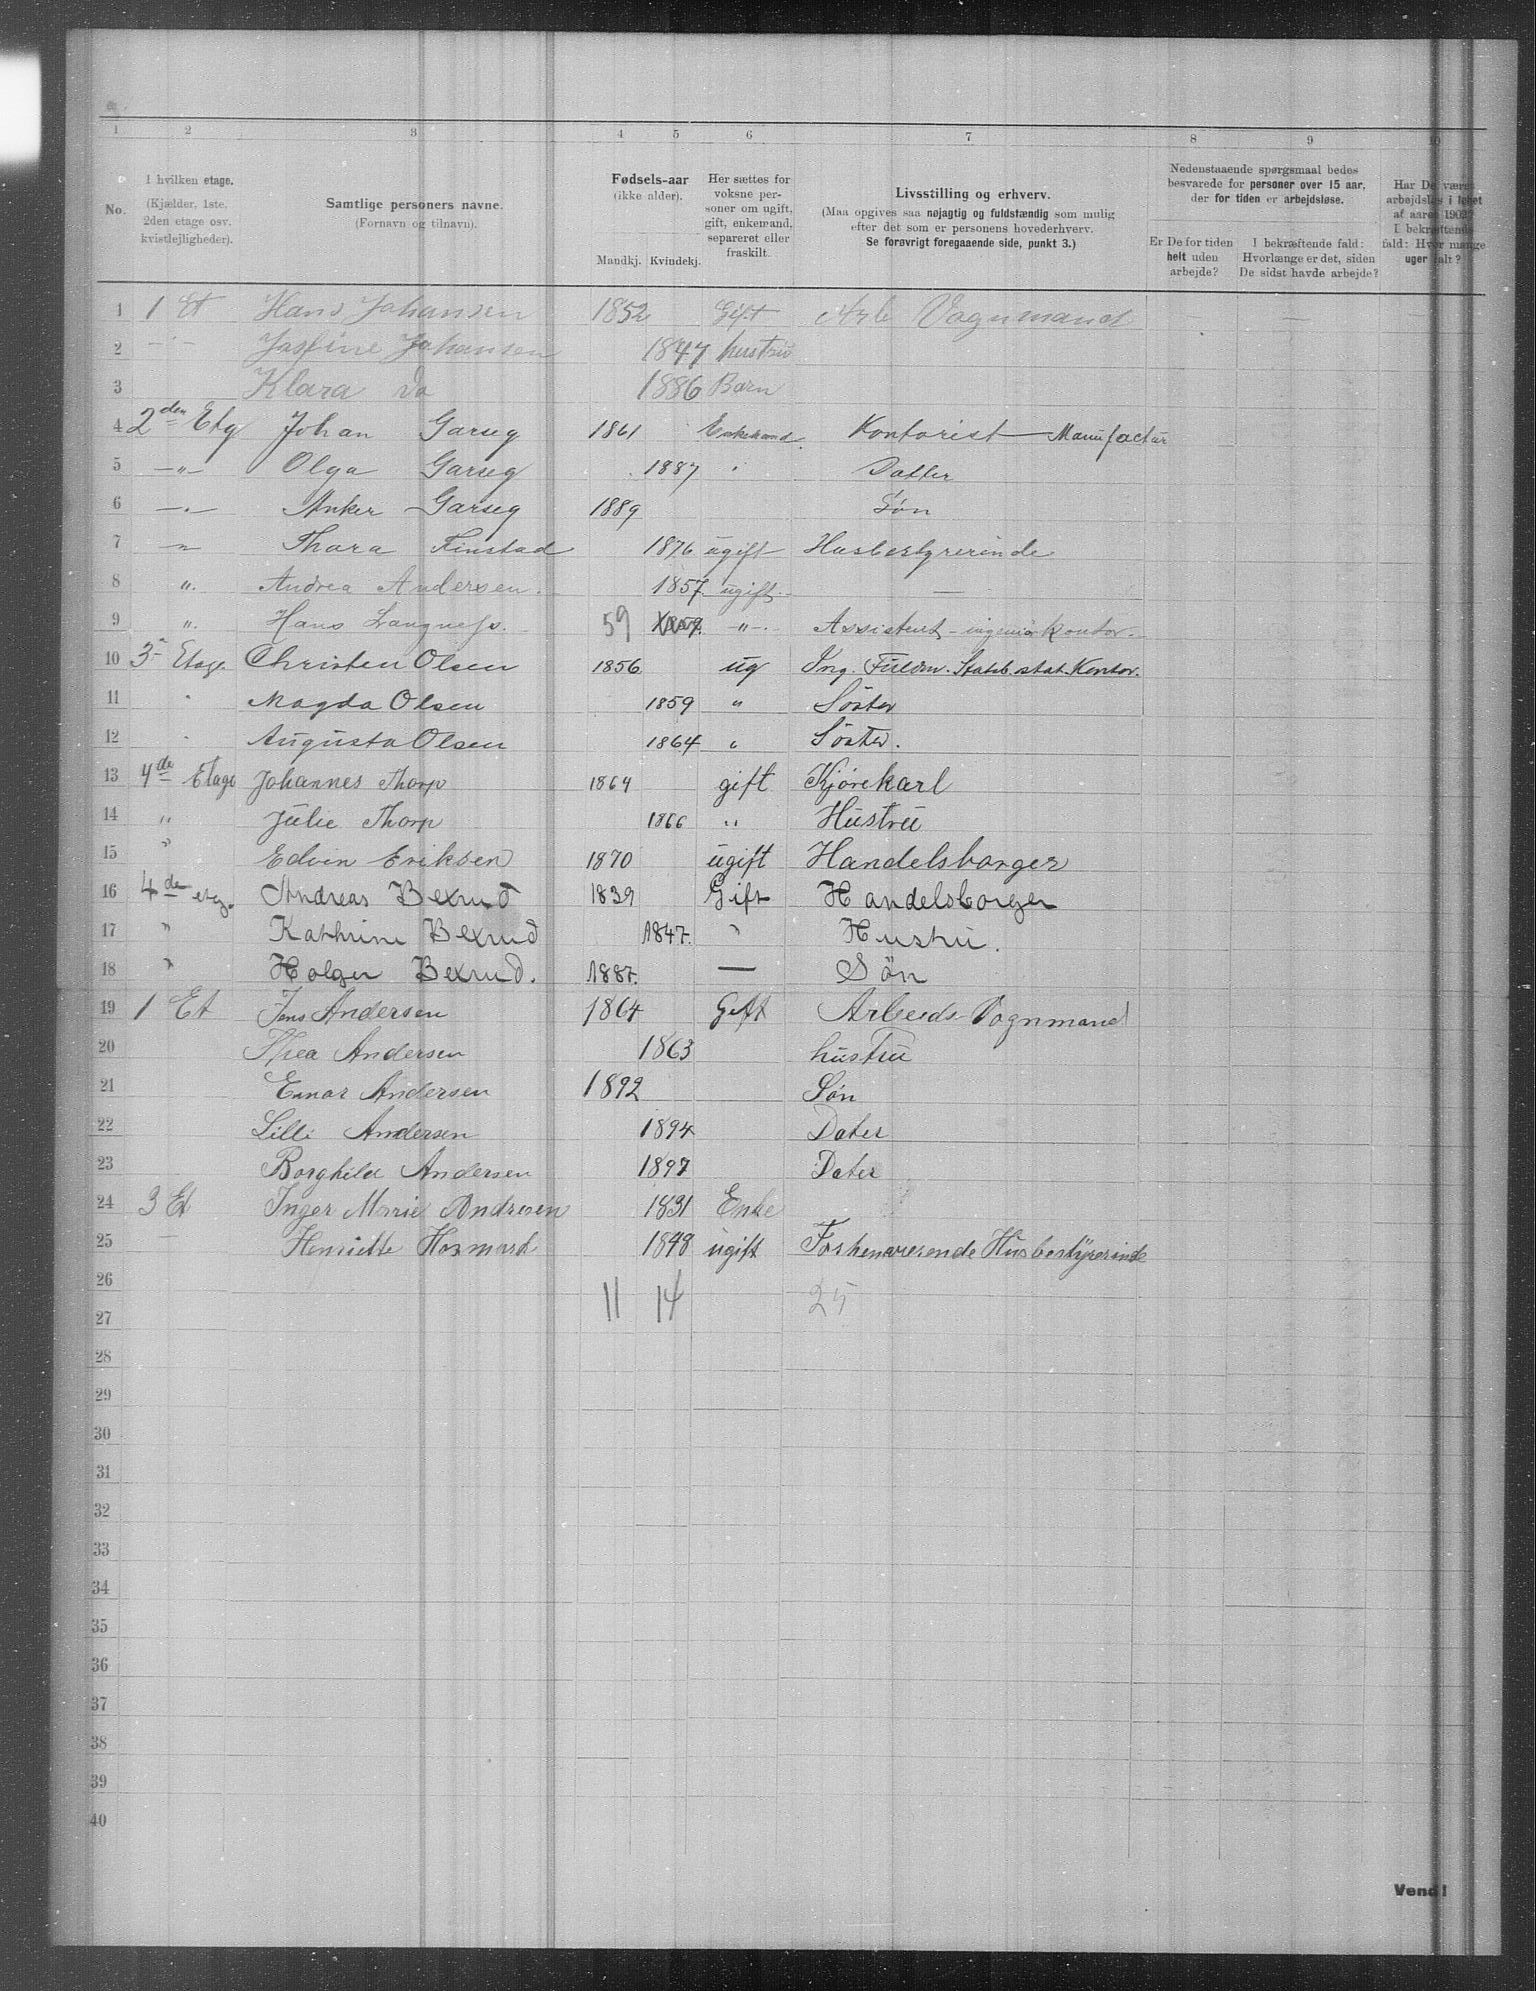 1 2 3 4 5 6 7 8 9 10
No.
I hvilken etage.
(Kjælder, 1ste,
2den etage osv.
kvistlejligheder).
Samtlige personers navne.
(Fornavn og tilnavn).
Fødsels-aar
(ikke alder).
Mandkj. Kvindekj.
Her sættes for
voksne per-
soner om ugift,
gift, enkemand,
separeret eller
fraskilt.
Livsstilling og erhverv.
(Maa opgives saa nøjagtig og fuldstændig som mulig
efter det som er personens hovederhverv.
Se forøvrigt foregaaende side, punkt 3.)
Nedenstaaende spørgsmaal bedes
besvarede for personer over 15 aar,
der for tiden er arbejdsløse.
Er De for tiden
helt uden
arbejde?
I bekræftende fald:
Hvorlænge er det, siden
De sidst havde arbejde?
Har De været
arbejdsløs i løbet
af aaret 1902?
I bekræftende
fald: Hvor mange
uger ialt?
1 1 Et Hans Johansen 1852 Gift Arb Vognmand — —
2 -"- Josfine Johansen 1847 hustru
3 Klara Do 1886 Barn
4 2den Etg Johan Garseg 1861 Enkemand. Kontorist — Manufactur
5 —"— Olga Garseg 1887 " Datter
6 —"— Anker Garseg 1889 Søn
7 —"— Thora Finstad 1876 ugift Husbestyrerinde
8 ". Andrea Andersen. 1857. ugift. —
9 ". Hans Langness. 59 1859. —"—. Assistent - ingeniørkontor.
10 3- Etage Christen Olsen 1856 ug Ing. Kontor.
11 " Magda Olsen 1859 " Söster
12 " Augusta Olsen 1864 " Söster.
13 4de Etage Johannes Thorp 1864 gift Kjørekarl
14 " Julie Thorp 1866 " Hustru
15 " Edvin Eriksen 1870 ugift Handelsborger
16 4de etg. Andreas Bexrud 1839 Gift Handelsborger
17 " Kathrine Bexrud 1847. " Hustru.
18 " Holger Bexrud. 1887. — Søn
19 1 Et Jens Andersen 1864 Gift Arbeids-Vognmand
20 Thea Andersen 1863 hustru
21 Einar Andersen 1892 Søn
22 Lilli Andersen 1894 Dater
23 Borghild Andersen 1897 Dater
24 3 Et Inger Marie Andresen 1831 Enke
25 — Henriette Hosmark 1848 ugift Forhenværende Husbestyrerinde
26
27 11 14 25
28
29
30
31
32
33
34
35
36
37
38
39
40
Vend!